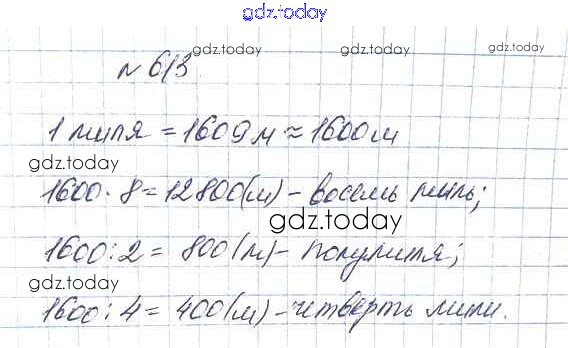 gdz.today
gdz.today gdz.today gdz.today
№ 613
1 миля = 1609 м ≈ 1600 м
gdz.today
1600 · 8 = 12800 (м) - восемь миль;
gdz.today
1600 : 2 = 800 (м) - полумиля;
gdz.today
1600 : 4 = 400 (м) - четверть мили.